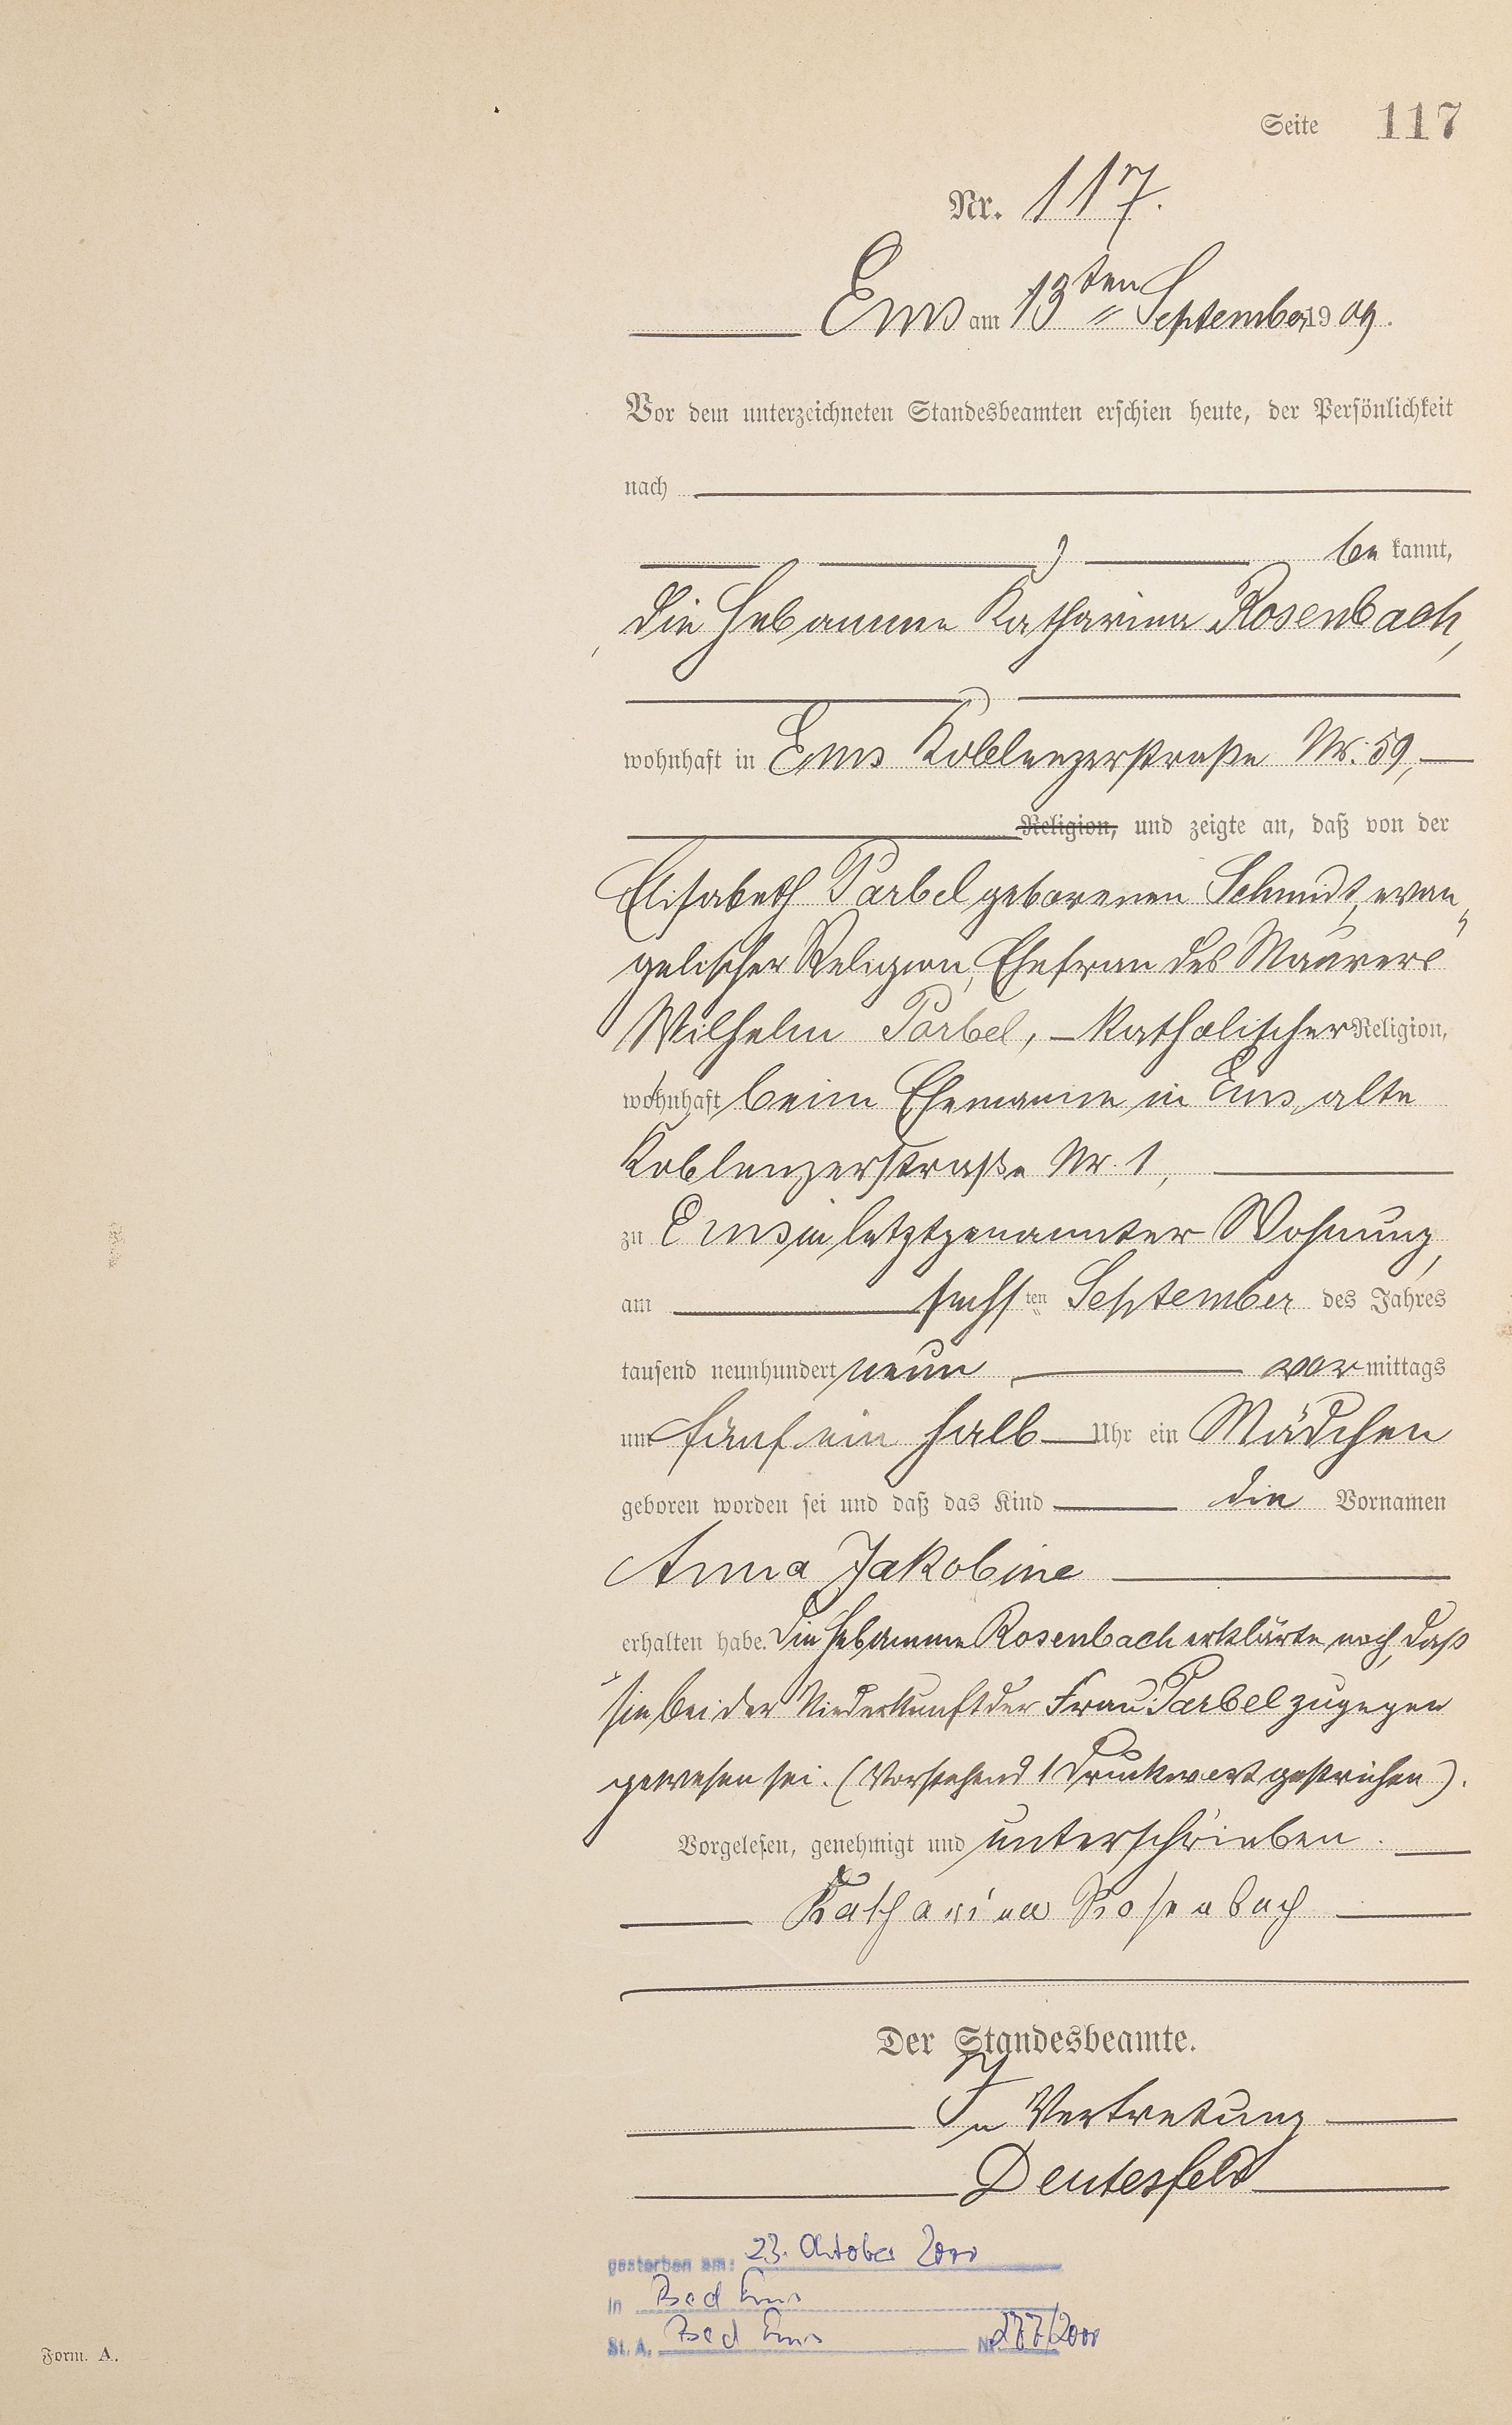 Seite 117
Nr. 117.
Ems am 13ten September 1909.
Vor dem unterzeichneten Standesbeamten erschien heute, der Persönlichkeit
nach
be kannt,
die Hebamme Katharina Rosenbach,
wohnhaft in Ems Koblenzerstraße Nr. 59,
Religion, und zeigte an, daß von der
Elisabeth Parbel geborenen Schmidt, evan„
gelischer Religion, Ehefrau des Maurers
Wilhelm Parbel, katholischer Religion,
wohnhaft beim Ehemanne in Ems, alte
Koblenzerstraße Nr. 1,
zu Ems in letztgenannter Wohnung,
am sechsten September des Jahres
tausend neunhundert neun vormittags
um fünf ein halb Uhr ein Mädchen
geboren worden sei und daß das Kind die Vornamen
Anna Jakobine
erhalten habe. Die Hebamme Rosenbach erklärte noch, daß
sie bei der Niederkunft der Frau Parbel zugegen
gewesen sei. (Vorstehend 1 Druckwort gestrichen).
Vorgelesen, genehmigt und unterschrieben.
Katharina Rosenbach
Der Standesbeamte.
In Vertretung
Deutesfeld
gestorben am: 23. Oktober 2000
in Bad Ems
St. A. Bad Ems Nr. 277/2000
Form. A.